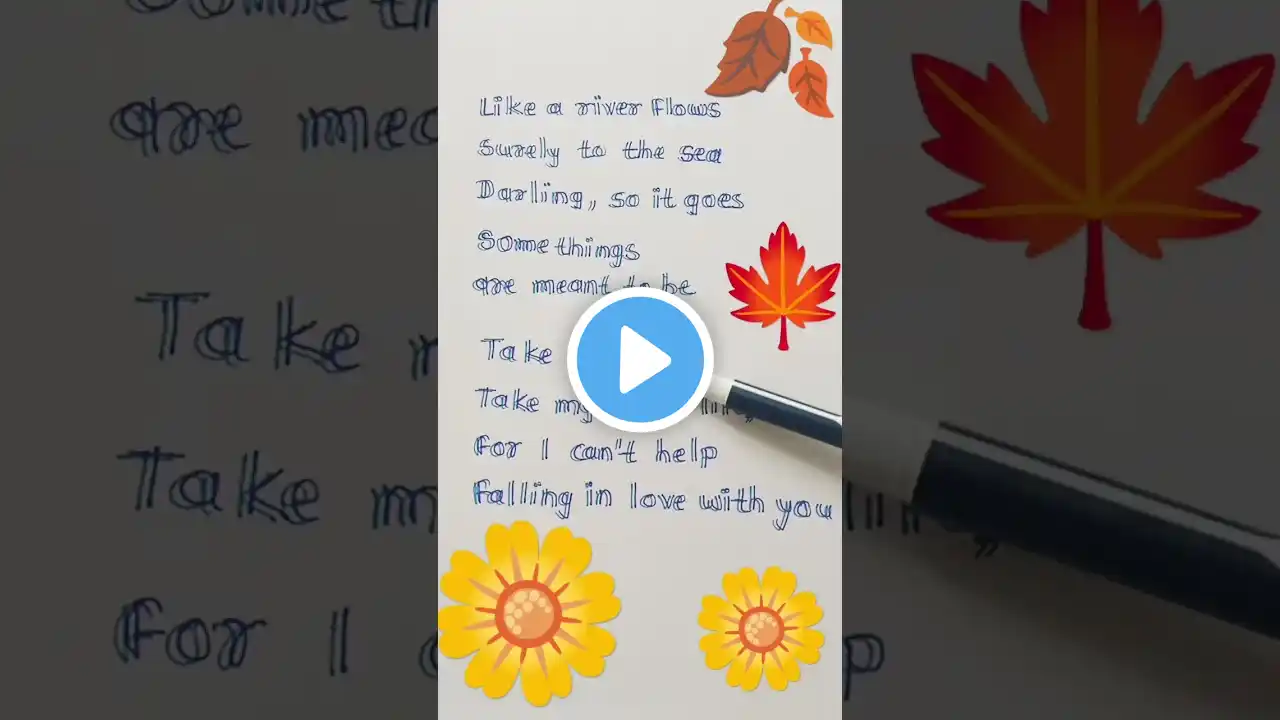 Like a river flows
Surely to the sea
Darling, so it goes
Some things
are meant to be
Take
Take my
For I can't help
Falling in love with you